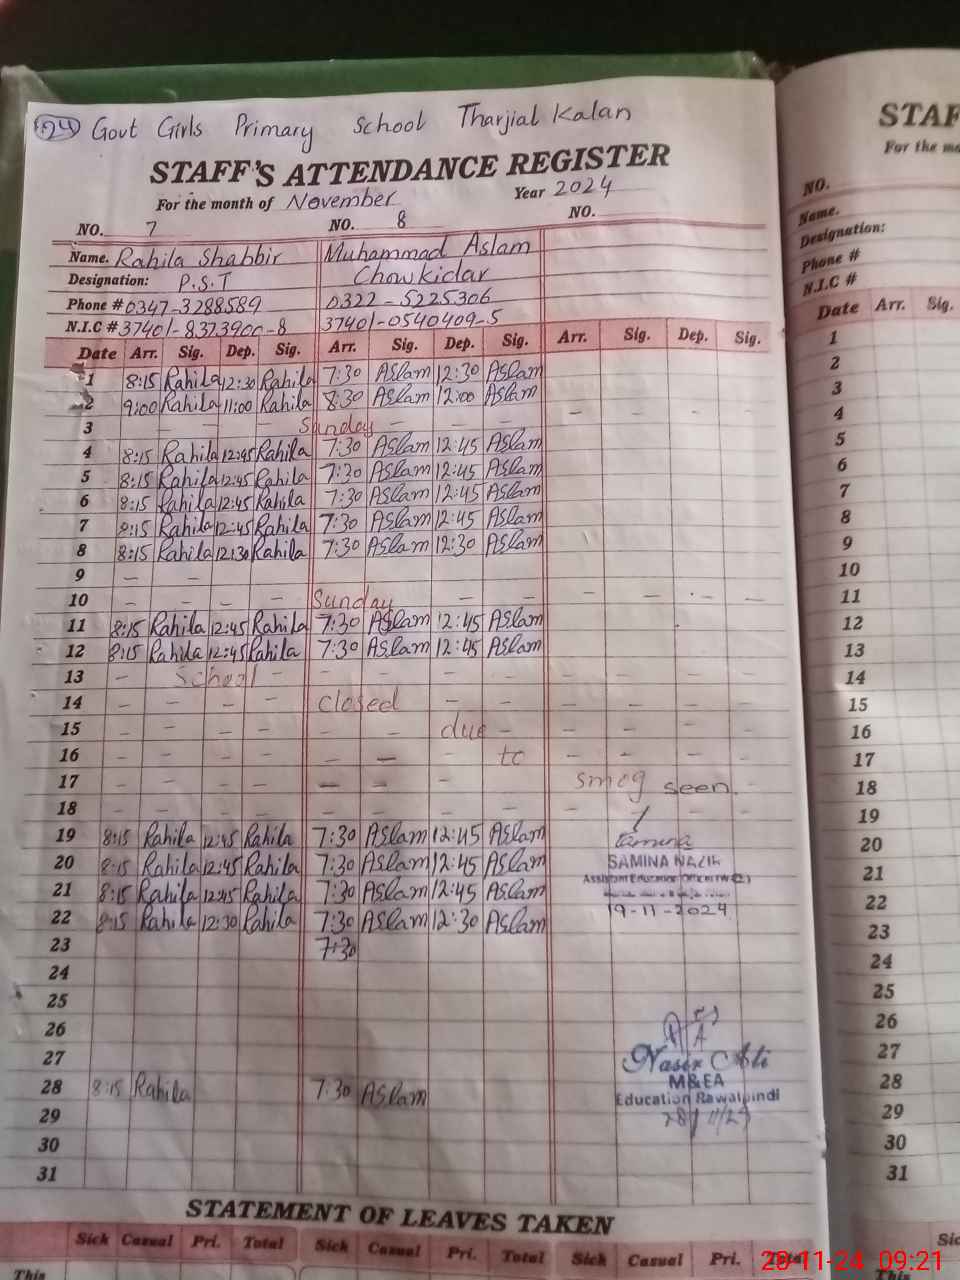 24 Govt Girls Primary School Tharjial Kalan
STAFF'S ATTENDANCE REGISTER
For the month of November Year 2024
NO. 7 NO. 8 NO.
Name. Rahila Shabbir Muhammad Aslam
Designation: P.S.T Chowkidar
Phone # 0347-3288589 0322-5225306
N.I.C # 37401-8373900-8 37401-0540409-5
Date Arr. Sig. Dep. Sig. Arr. Sig. Dep. Sig. Arr. Sig. Dep. Sig.
1 8:15 Rahila 12:30 Rahila 7:30 Aslam 12:30 Aslam
2 9:00 Rahila 11:00 Rahila 8:30 Aslam 12:00 Aslam
3 - - - - Sunday - - - - - - -
4 8:15 Rahila 12:45 Rahila 7:30 Aslam 12:45 Aslam
5 8:15 Rahila 12:45 Rahila 7:30 Aslam 12:45 Aslam
6 8:15 Rahila 12:45 Rahila 7:30 Aslam 12:45 Aslam
7 8:15 Rahila 12:45 Rahila 7:30 Aslam 12:45 Aslam
8 8:15 Rahila 12:30 Rahila 7:30 Aslam 12:30 Aslam
9 - -
10 - - - - Sunday - - - - - -
11 8:15 Rahila 12:45 Rahila 7:30 Aslam 12:45 Aslam
12 8:15 Rahila 12:45 Rahila 7:30 Aslam 12:45 Aslam
13 - School - - - - - - - - -
14 - - - - closed - - - - - -
15 - - - - - - due - - - - -
16 - - - - - - - to - - - -
17 - - - - - - - smog seen
18 - - - - - - - - -
19 8:15 Rahila 12:45 Rahila 7:30 Aslam 12:45 Aslam
20 8:15 Rahila 12:45 Rahila 7:30 Aslam 12:45 Aslam SAMINA NAZIR
21 8:15 Rahila 12:45 Rahila 7:30 Aslam 12:45 Aslam Assistant Education Officer
22 8:15 Rahila 12:30 Rahila 7:30 Aslam 12:30 Aslam 19-11-2024
23 7:30
24
25
26
27 Nasir Ali
28 8:15 Rahila 7:30 Aslam M&EA
Education Rawalpindi
29 28/11/24
30
31
STATEMENT OF LEAVES TAKEN
Sick Casual Pri. Total Sick Casual Pri. Total Sick Casual Pri. Total
This
STAF
For the mo
NO.
Name.
Designation:
Phone #
N.I.C #
Date Arr. Sig.
1
2
3
4
5
6
7
8
9
10
11
12
13
14
15
16
17
18
19
20
21
22
23
24
25
26
27
28
29
30
31
Sic
This
28-11-24 09:21